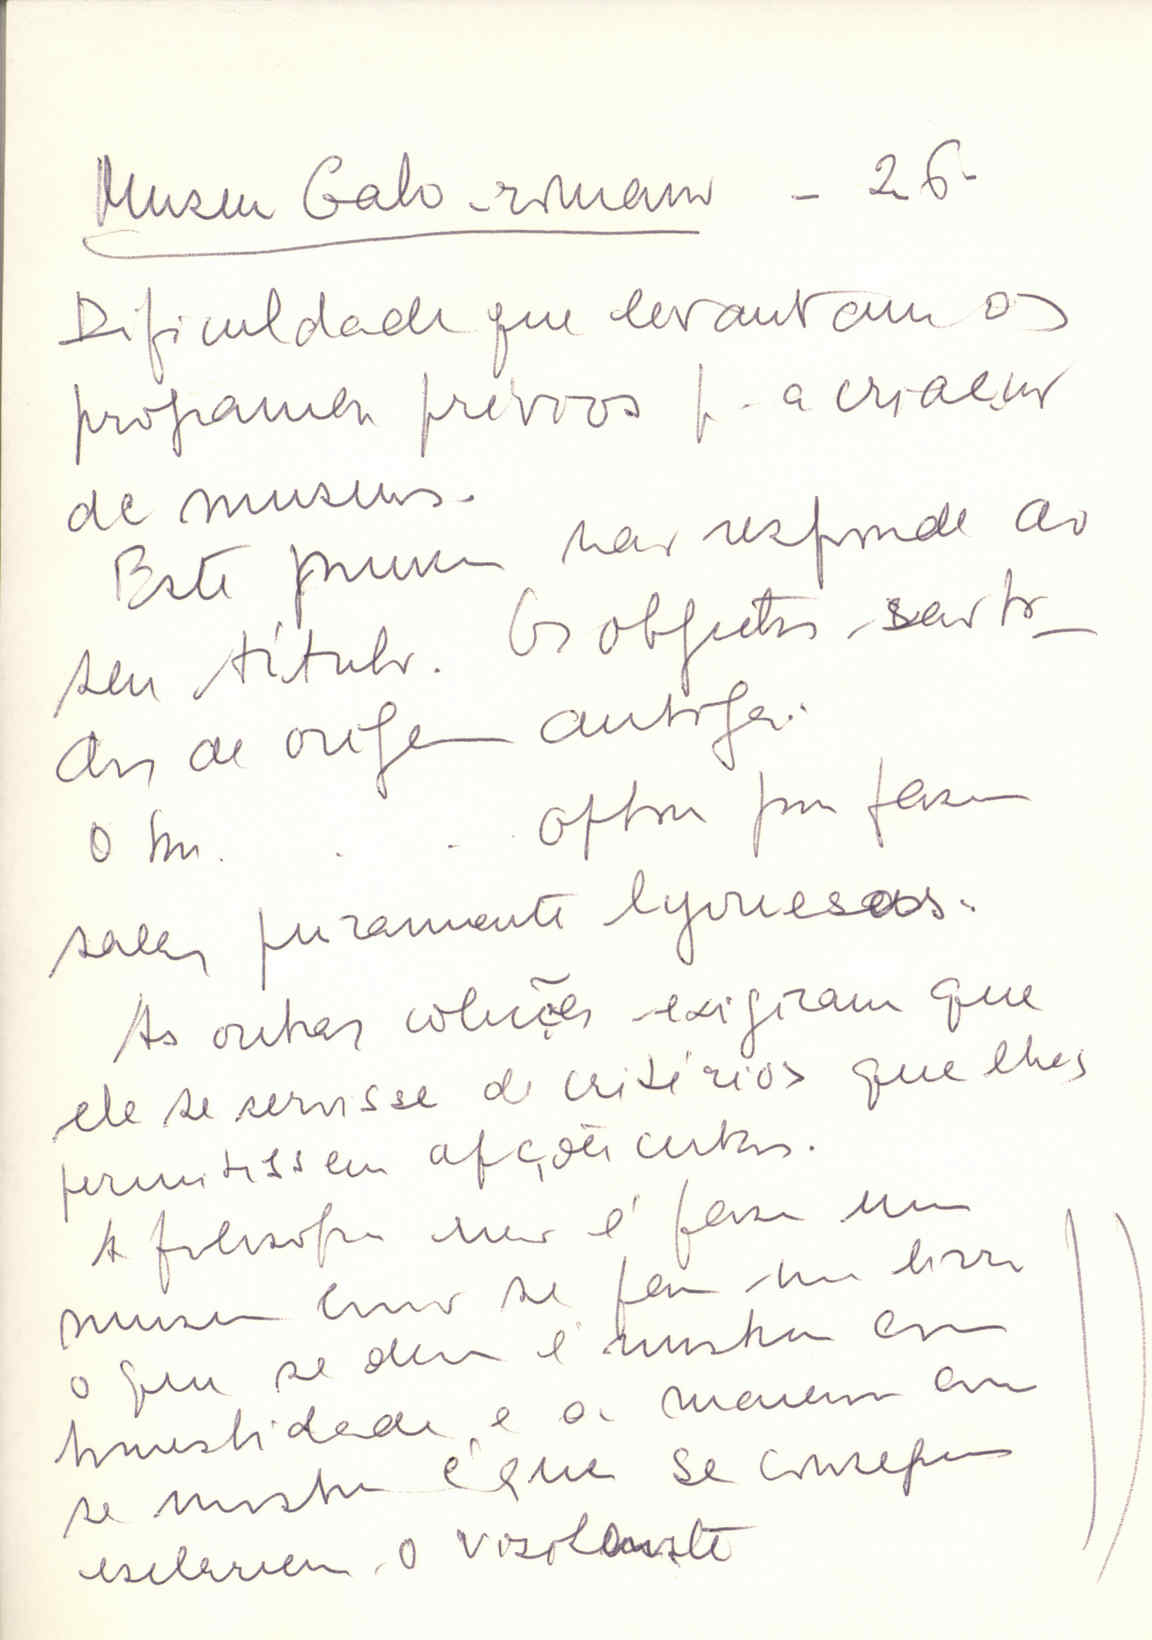 Museu Galo-romano - 26
Dificuldade que levantam os
programas prévios p. a criação
de museus.
Este museu não responde ao
seu título. Os objectos são to-
dos de origem antiga.
O sr. . . . optou por fazer
salas puramente lyonesas.
As outras colecções exigiram que
ele se servisse de critérios que lhes
permitissem opções certas.
A filosofia não é fazer um
museu como se faz um livro
o que se deve é mostrar com
honestidade e a maneira como
se mostra é que se consegue
esclarecer o visitante